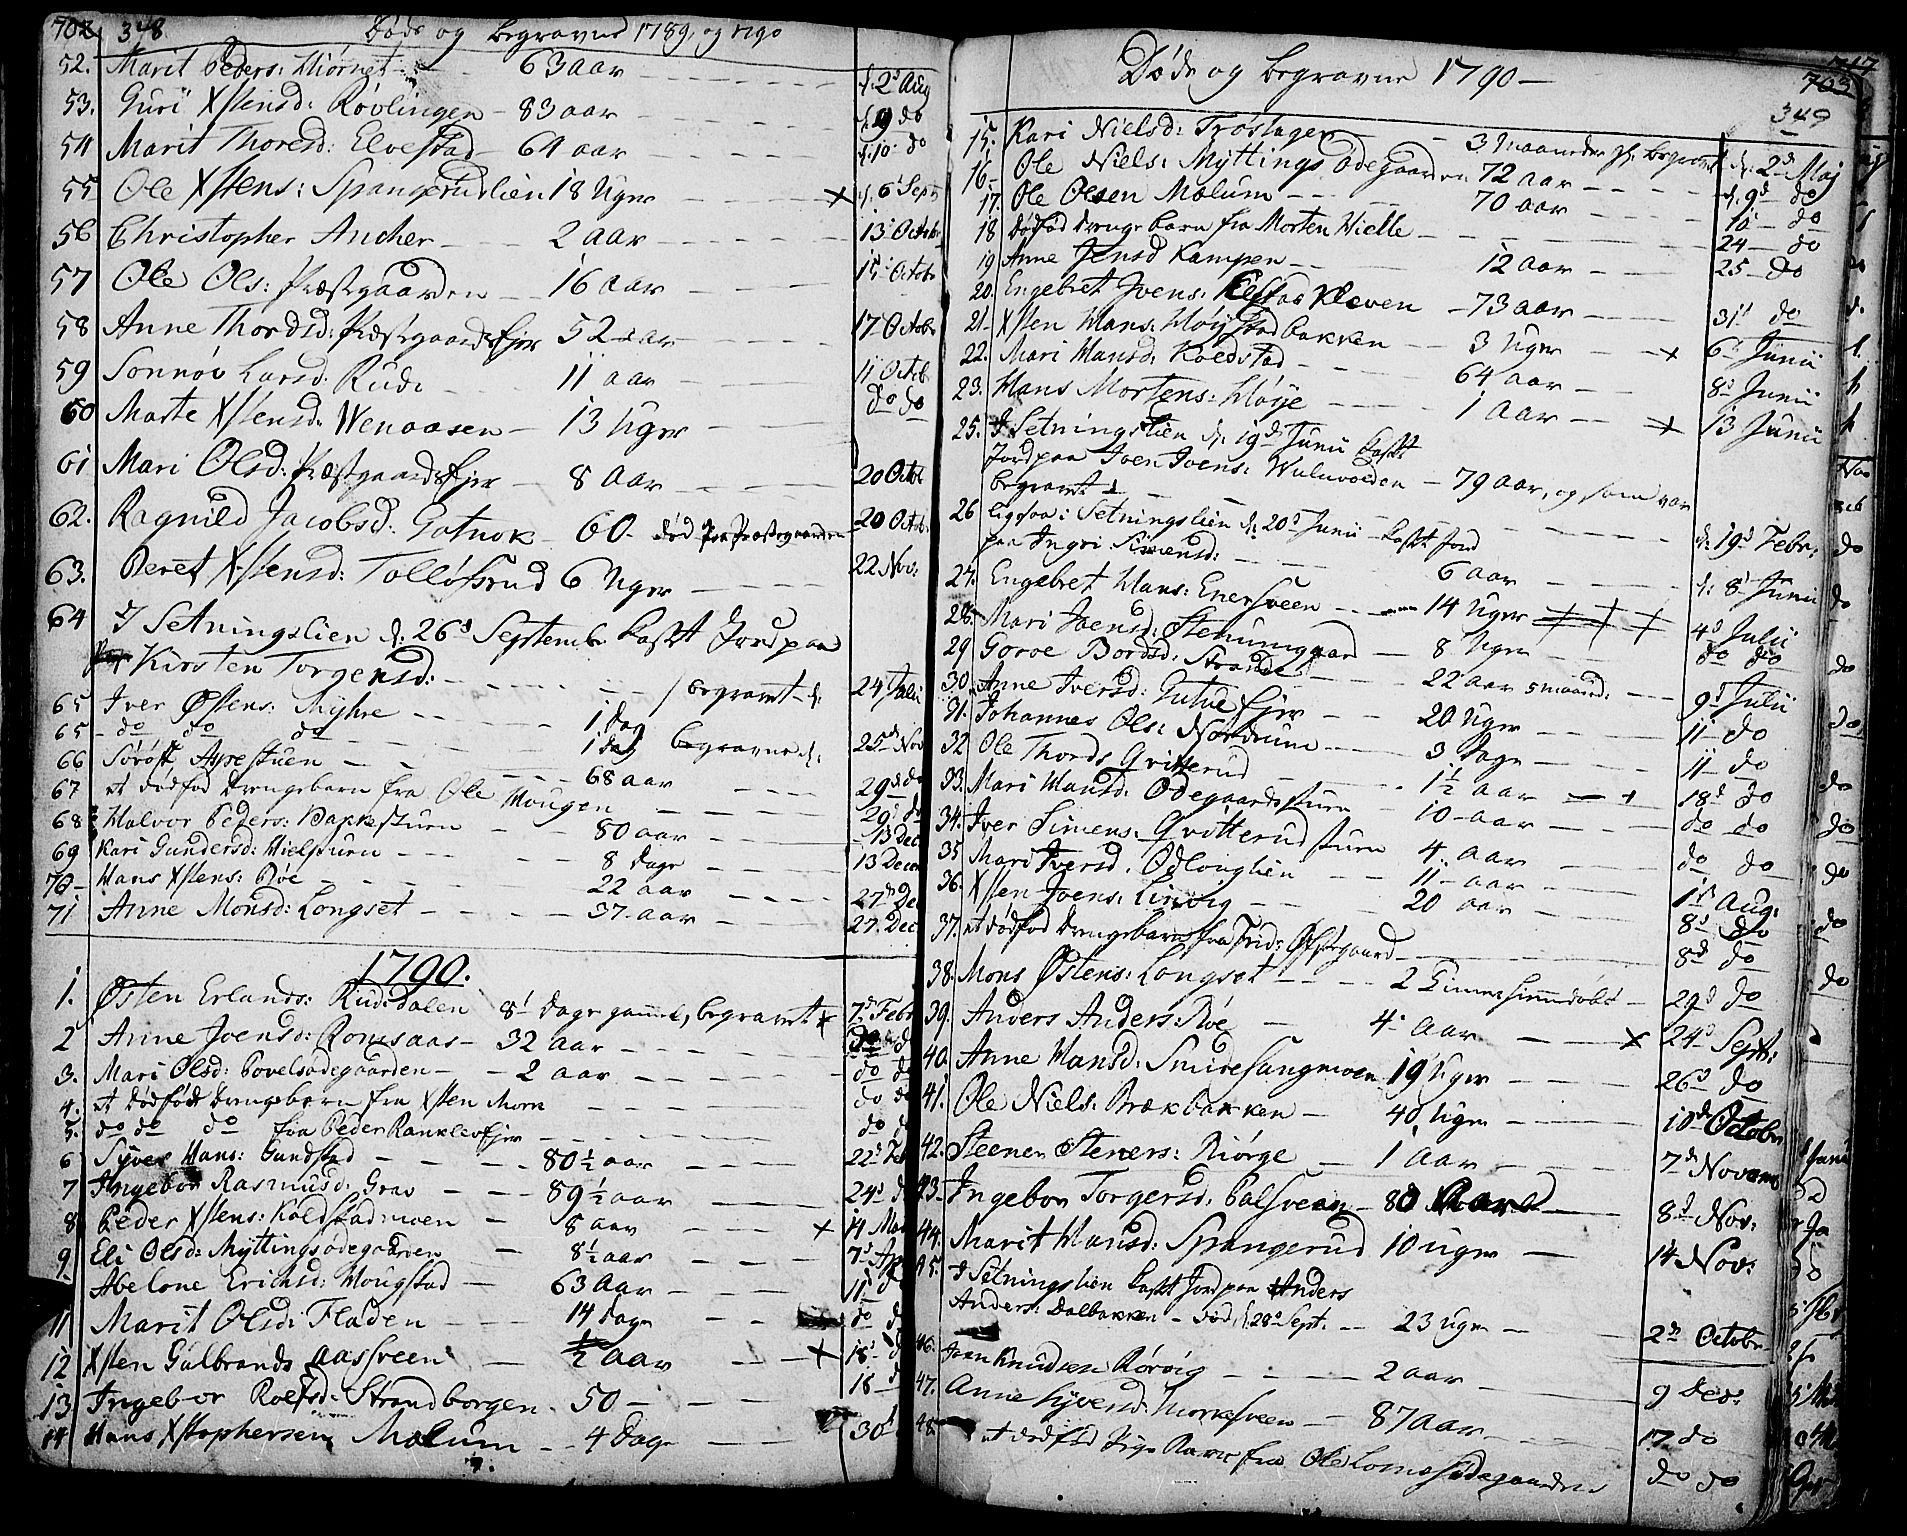 702 348 Døde og begravne 1789, og 1790
52. Marit Peders: Hiørnet 63 aar d. 2d Aug
53. Guri Xstensd: Røvlingen 83 aar d. 9 do
54 Marit Thoresd: Elvestad 64 aar d. 10 do
55 Ole Xstens: Spangrudlien 18 Uger d. 6 Sept
56 Christopher Ancher 2 aar 13 Octobr
57 Ole Ols: Præstgaarden 16 aar 15 Octobr
58 Anne Thordsd: Præstgaardsejer 52 aar 17 Octobr
59 Sønnøv Larsd: Rude 11 aar 11 Octob
60 Marte Xstensd: Wenaasen 13 Uger do do
61 Mari Olsd: Præstgaardsejer 8 aar 20 Octbr
62. Ragnild Jacobsd: Gotnok 60 død paa Præstegaarden 20 Octobr
63. Beret Xstensd: Tolløfsrud 6 Uger 22 Nov:
64 I Setningslien d: 26d Septemb: kast Jord paa
Kirsten Torgersd: begravet d: 24 Juli
65 Iver Østens: Myhre 1 dag
65 do do do 1 dag begravne d: 25d Nov
66 Sørøst, Ayrestuen 68 aar 29d do
67 et dødfød drengebarn fra Ole Hougen 29 do
68 Halvor Peders: Bakkestuen 80 aar 13 Dec
69 Kari Gundersd: Hielstuen 8 dage 13 Decm
70 Hans Xstens: Bøe 22 aar 27d De
71 Anne Monsd: Longset 37 aar 27. Dec
1790.
1. Østen Erlands: Rudsdalen 8 dage gammel, begravet 7d Febr
2 Anne Joensd: Romsaas 32 aar do d
3. Mari Olsd: Povelsødegaarden 2 aar do do
4. et dødfødt drengebarn fra Xsten Moen do do
5. do do do fra Peder Ranklevejer do d
6 Syver Hans: Gundstad 80½ aar 22d Feb
7 Ingebor Rasmusd: Grav 89½ aar 24d d
8 Peder Xstens: Koldstadmoen 8 aar 14 Mar
9. Eli Olsd: Myttingsødegaarden 8½ aar 7d Ap
Abelone Erichsd: Hougstad 63 aar 11 d
11 Marit Olsd: Fladen 14 dage do d
12 Xsten Gulbrands Aassveen ½ aar 18 d
13 Ingebor Rolfsd: Strandborgen 50 18 d
14 Hans Xstophersen Mælum 4 dage 30
Døde og begravne 1790
717
703
349
15. Kari Nielsd: Trøstager 3 maaneder gl. begravet d: 2d Maj
16 Ole Niels: Myttings Ødegaarden 72 aar d. 9d do
17. Ole Olsen Mælum 70 aar 16 do
18 dødfød drenge barn fra Morten Hielle 24 do
19 Anne Jensd Kampen 12 aar 25 do
20. Engebret Joens: Kleven 73 aar 31 do
21 Xsten Hans: Høystadbakken 3 Uger 6 Junii
22. Mari Hansd: Koldstad 64 aar 8d Junii
23. Hans Mortens: Høye 1 aar 13 Junii
25. I Setningslien d: 19d Junii kast
Jord paa Joen Joens: Wuluvolden 79 aar, og som var
begravet d: 19d Febr:
26 ligesaa i Setningslien d: 20d Junii kast Jord
paa Ingri Simensd: 6 aar d: 8 Junii
27. Engebret Hans: Enersveen 14 Uger 4d Julii
28. Mari Joensd: Stenumgaard 8 Uger do do
29 Goroe Bordsd: Strande 22 aar 5 maaned: 9d Julii
30. Anne Iversd: Gutue Ejer 20 Uger 11 do
31. Johannes Ols: Nordrum 3 dage 11 do
32 Ole Thords Qvitterud 1½ aar 18d do
33. Mari Hansd: Ødegaardsstuen 10 aar do do
34. Iver Simens: Qvitterudstuen 4 aar do do
35 Mari Iversd. Odlouglien 11 aar 1d Aug:
36. Xsten Joens: Linvig 20 aar 8d do
37. et dødfød drengebarn fra Frid: Østegaard 8d do
38. Mons Østens: Longset 2 Timer hiemmedøbt 29d do
39. Anders Anders: Røe 4 aar 24d Sept:
40. Anne Hansd: Smidesangmoen 19 Uger 26d do
41. Ole Niels: Brækbakken 40 Uger 10d Octobr
42. Steener Steners: Kiørge 1 aar 7d Novemb
43. Ingebor Torgersd: Palsveen 80 Aar 8d Nov:
44. Marit Hansd: Spangerud 10 uger 14 Nov:
45. I Setningslien kast Jord paa Anders
Anders: Dalbakken død d. 28d Sept. 23 uger 2d Octobr
46. Joen Knudsen Rørvig 2 aar 9 Dec:
47. Anne Syversd: Morkesveen 87 aar 17 do
48. et dødfød Pige Barn fra Ole Lomsødegaarden do do